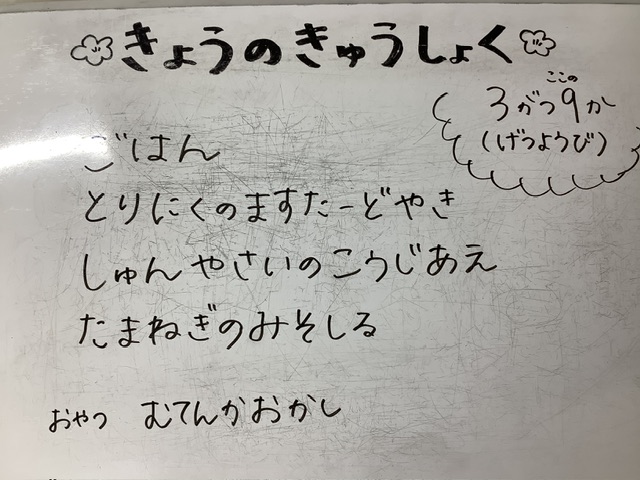 きょうのきゅうしょく
ここの
3がつ9か
(げつようび)
ごはん
とりにくのますたーどやき
しゅんやさいのこうじあえ
たまねぎのみそしる
おやつ むてんかおかし